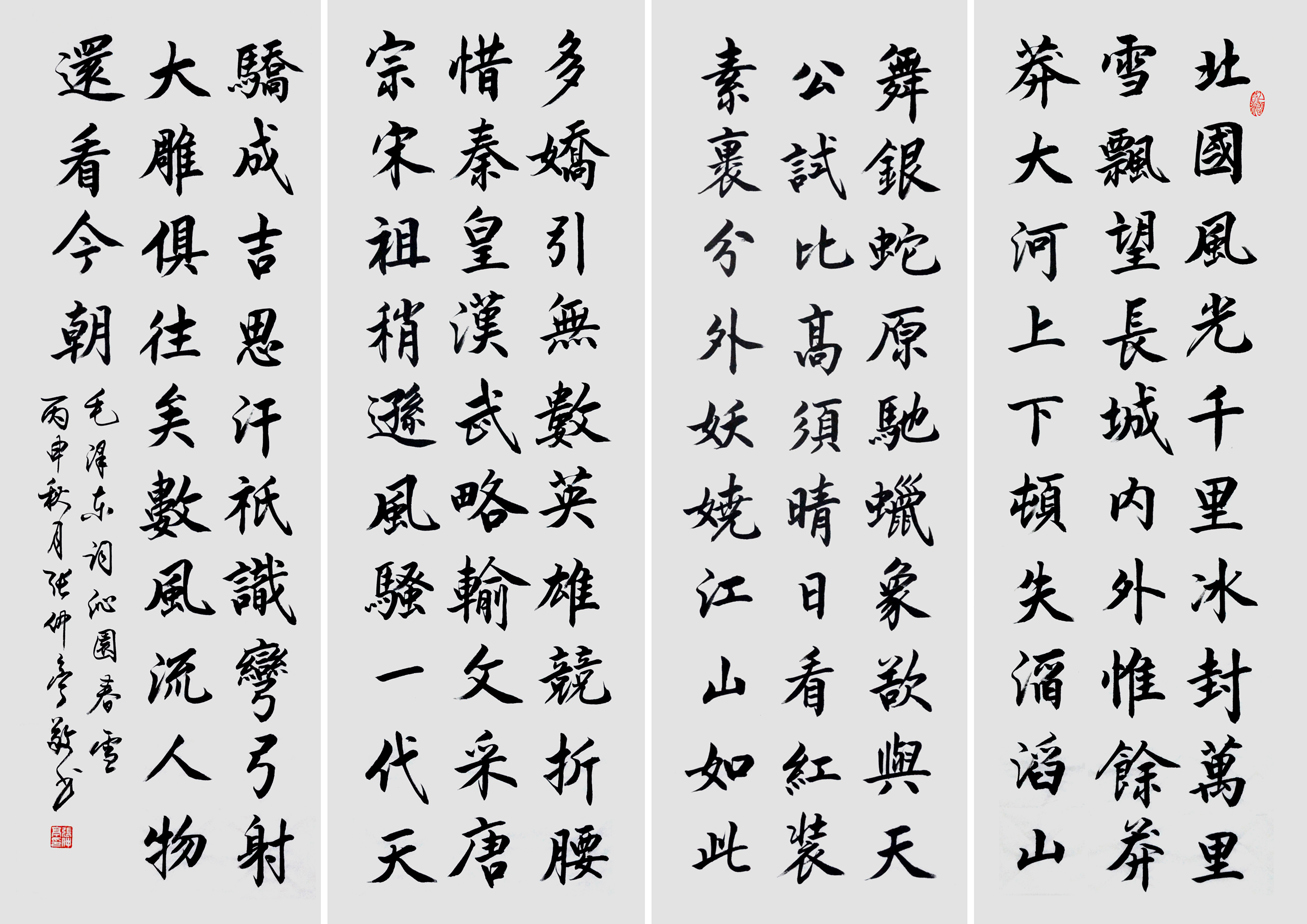 北國風光千里冰封萬里
雪飄望長城内外惟餘莽
莽大河上下頓失滔滔山
舞銀蛇原馳蠟象欲與天
公試比高須晴日看紅装
素裹分外妖嬈江山如此
多嬌引無數英雄競折腰
惜秦皇漢武略輸文采唐
宗宋祖稍遜風騷一代天
驕成吉思汗祇識彎弓射
大雕俱往矣數風流人物
還看今朝
毛泽东词沁園春雪
丙申秋月张仲亭敬书